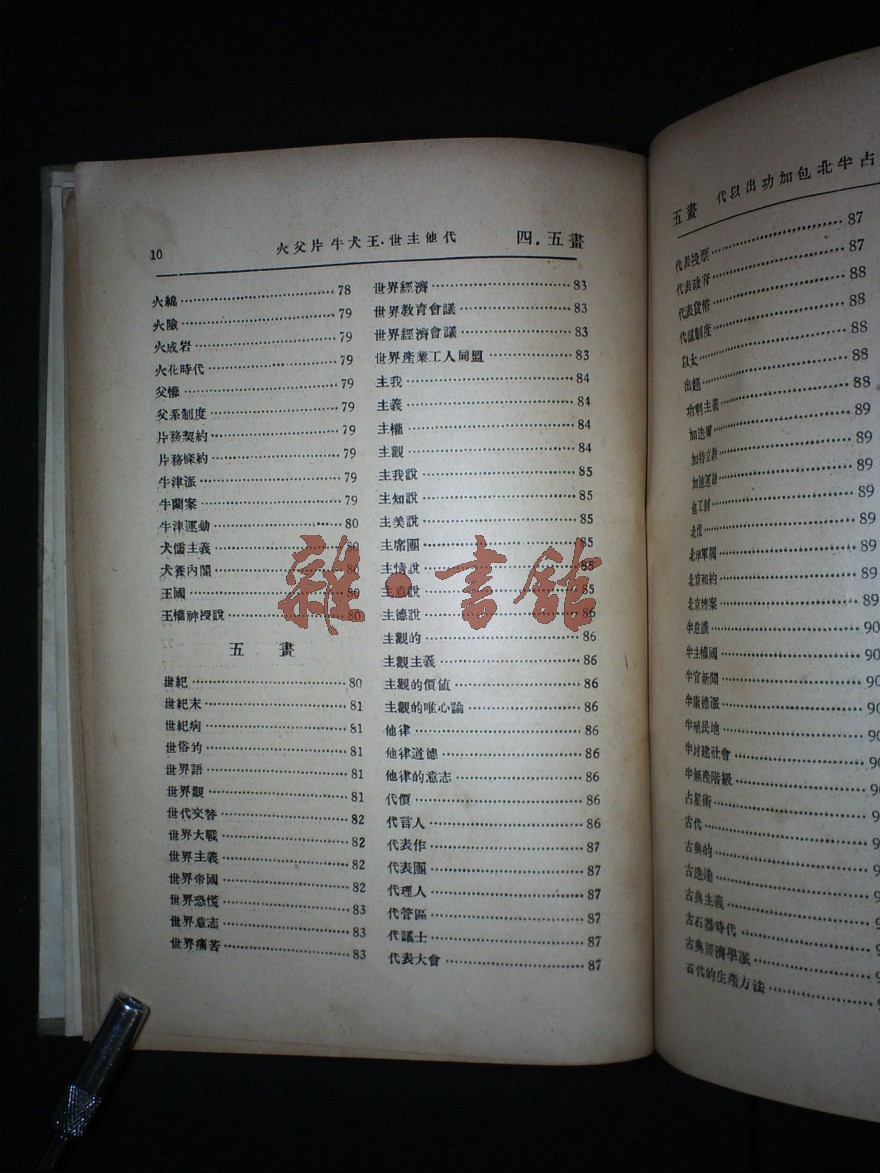 10 火父片牛犬王·世主他代 四.五畫
火綿 78
火險 79
火成岩 79
火化時代 79
父權 79
父系制度 79
片務契約 79
片務條約 79
牛津派 79
牛蘭案 79
牛津運動 80
犬儒主義 80
犬養內閣 80
王國 80
王權神授說 80
五 畫
世紀 80
世紀末 81
世紀病 81
世俗的 81
世界語 81
世界觀 81
世代交替 82
世界大戰 82
世界主義 82
世界帝國 82
世界恐慌 83
世界意志 83
世界痛苦 83
世界經濟 83
世界教育會議 83
世界經濟會議 83
世界產業工人同盟 83
主我 84
主義 84
主權 84
主觀 84
主我說 85
主知說 85
主美說 85
主席團 85
主情說 85
主意說 85
主德說 86
主觀的 86
主觀主義 86
主觀的價値 86
主觀的唯心論 86
他律 86
他律道德 86
他律的意志 86
代價 86
代言人 86
代表作 87
代表團 87
代理人 87
代管區 87
代議士 87
代表大會 87
雜·書館
五畫 代以出功加包北半占
代表投票 87
代表政府 87
代表貨幣 88
代議制度 88
以太 88
出超 88
功利主義 88
加迭爾 89
加特立敎 89
加迪運動 89
包工制 89
北伐 89
北洋軍閥 89
北京和約 89
北京檔案 89
半意識 90
半主權國 90
半官新聞 90
半康德派 90
半殖民地 90
半封建社會
半無產階級
占星術
古代
古典的
古迭達
古典主義
古石器時代
古典經濟學派
古代的生產方法